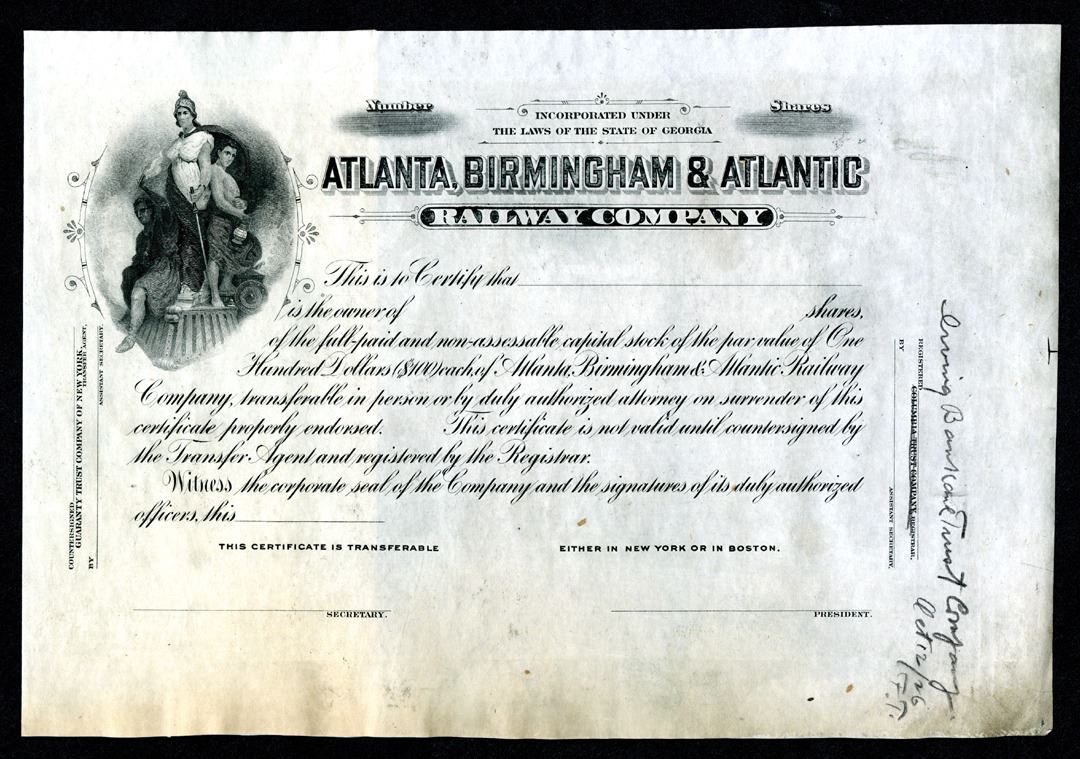 Number
Shares
INCORPORATED UNDER
THE LAWS OF THE STATE OF GEORGIA
ATLANTA, BIRMINGHAM & ATLANTIC
RAILWAY COMPANY
This is to Certify that
is the owner of shares,
of the full-paid and non-assessable capital stock of the par value of One
Hundred Dollars ($100) each, of Atlanta, Birmingham & Atlantic Railway
Company, transferable in person or by duly authorized attorney on surrender of this
certificate properly endorsed. This certificate is not valid until countersigned by
the Transfer Agent and registered by the Registrar.
Witness the corporate seal of the Company and the signatures of its duly authorized
officers, this
THIS CERTIFICATE IS TRANSFERABLE EITHER IN NEW YORK OR IN BOSTON.
SECRETARY.
PRESIDENT.
COUNTERSIGNED
GUARANTY TRUST COMPANY OF NEW YORK,
TRANSFER AGENT,
BY
ASSISTANT SECRETARY.
REGISTERED
COLUMBIA TRUST COMPANY, REGISTRAR.
BY
ASSISTANT SECRETARY.
Irving Bank Trust Company
Oct 12/26